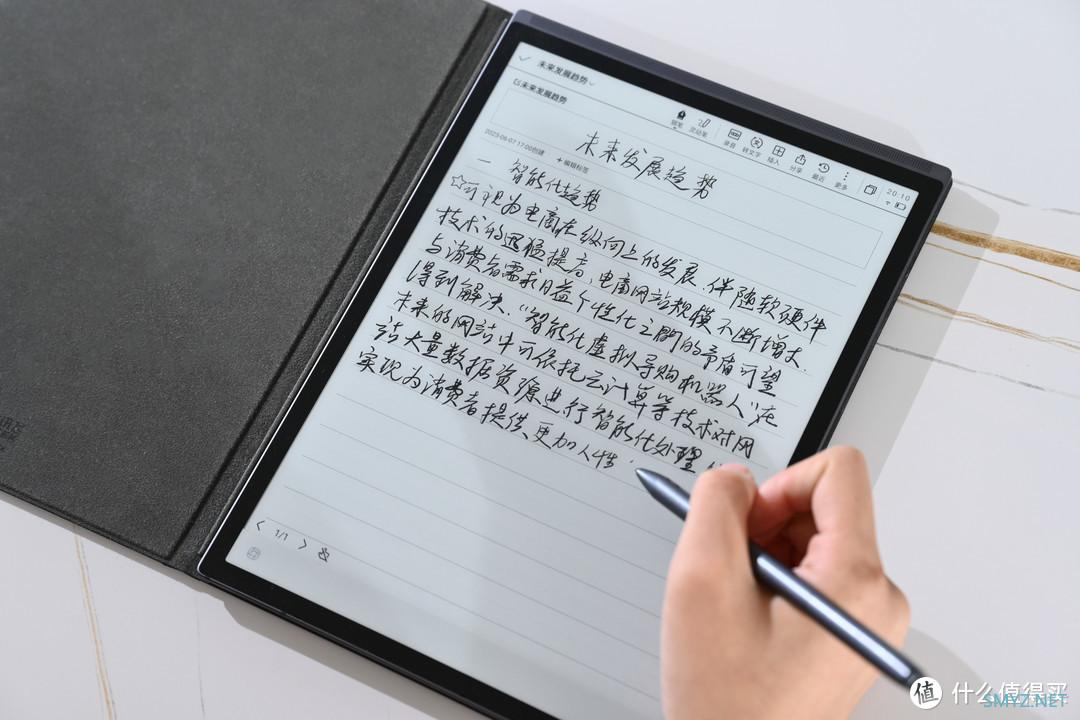 未来发展趋势
以未来发展趋势
钢笔 灵动笔 录音 转文字 插入 分享 最近 更多
20:10
2023-06-07 17:00创建 +编辑标签
未来发展趋势
一 智能化趋势
☆可视为电商在纵向上的发展.伴随软硬件
技术的迅猛提高,电商网站规模不断增大.
与消费者需求日益个性化之间的矛盾可望
得到解决.“智能化虚拟导购机器人”在
未来的网站中可依托云计算等技术对网
站大量数据资源进行智能化处理
实现为消费者提供更加人性
1/1
值 什么值得买
SMYZ.NET